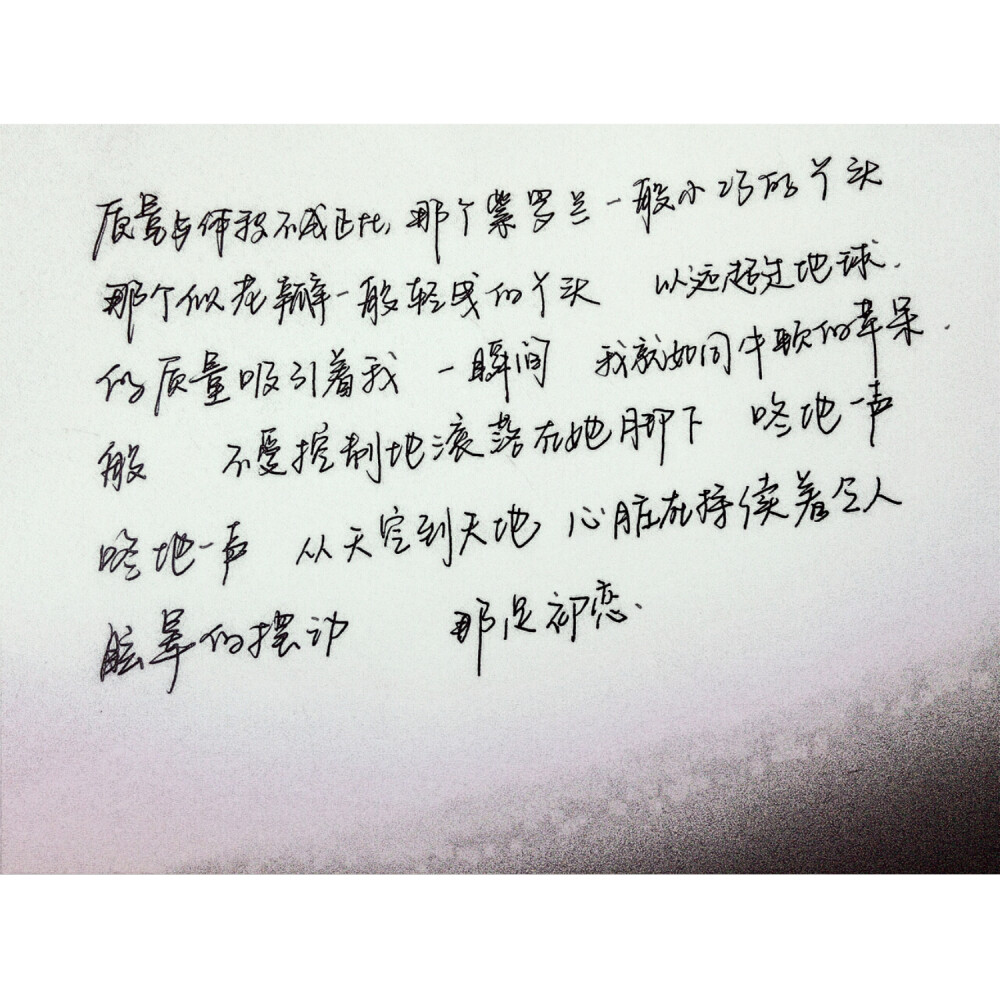 质量与体积不成正比,那个紫罗兰一般小巧的丫头
那个似花瓣一般轻曵的丫头 以远超过地球.
的质量吸引着我 一瞬间 我就如同牛顿的苹果.
般 不受控制地滚落在她脚下 咚地一声
咚地一声 从天空到天地, 心脏在持续着令人
眩晕的摆动 那是初恋.